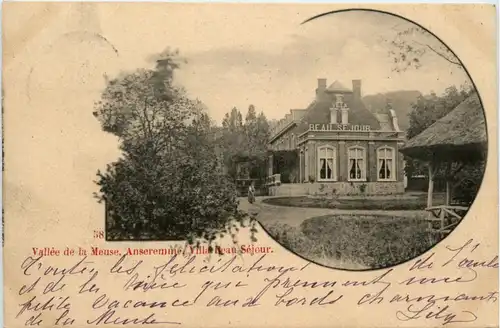 BEAU SEJOUR
38
Vallée de la Meuse, Anseremme, Villa Beau Séjour.
Toutes les félicitations de l'oncle
et de la que prennent une
petite vacance aux bords charmants
de la Meuse Lily